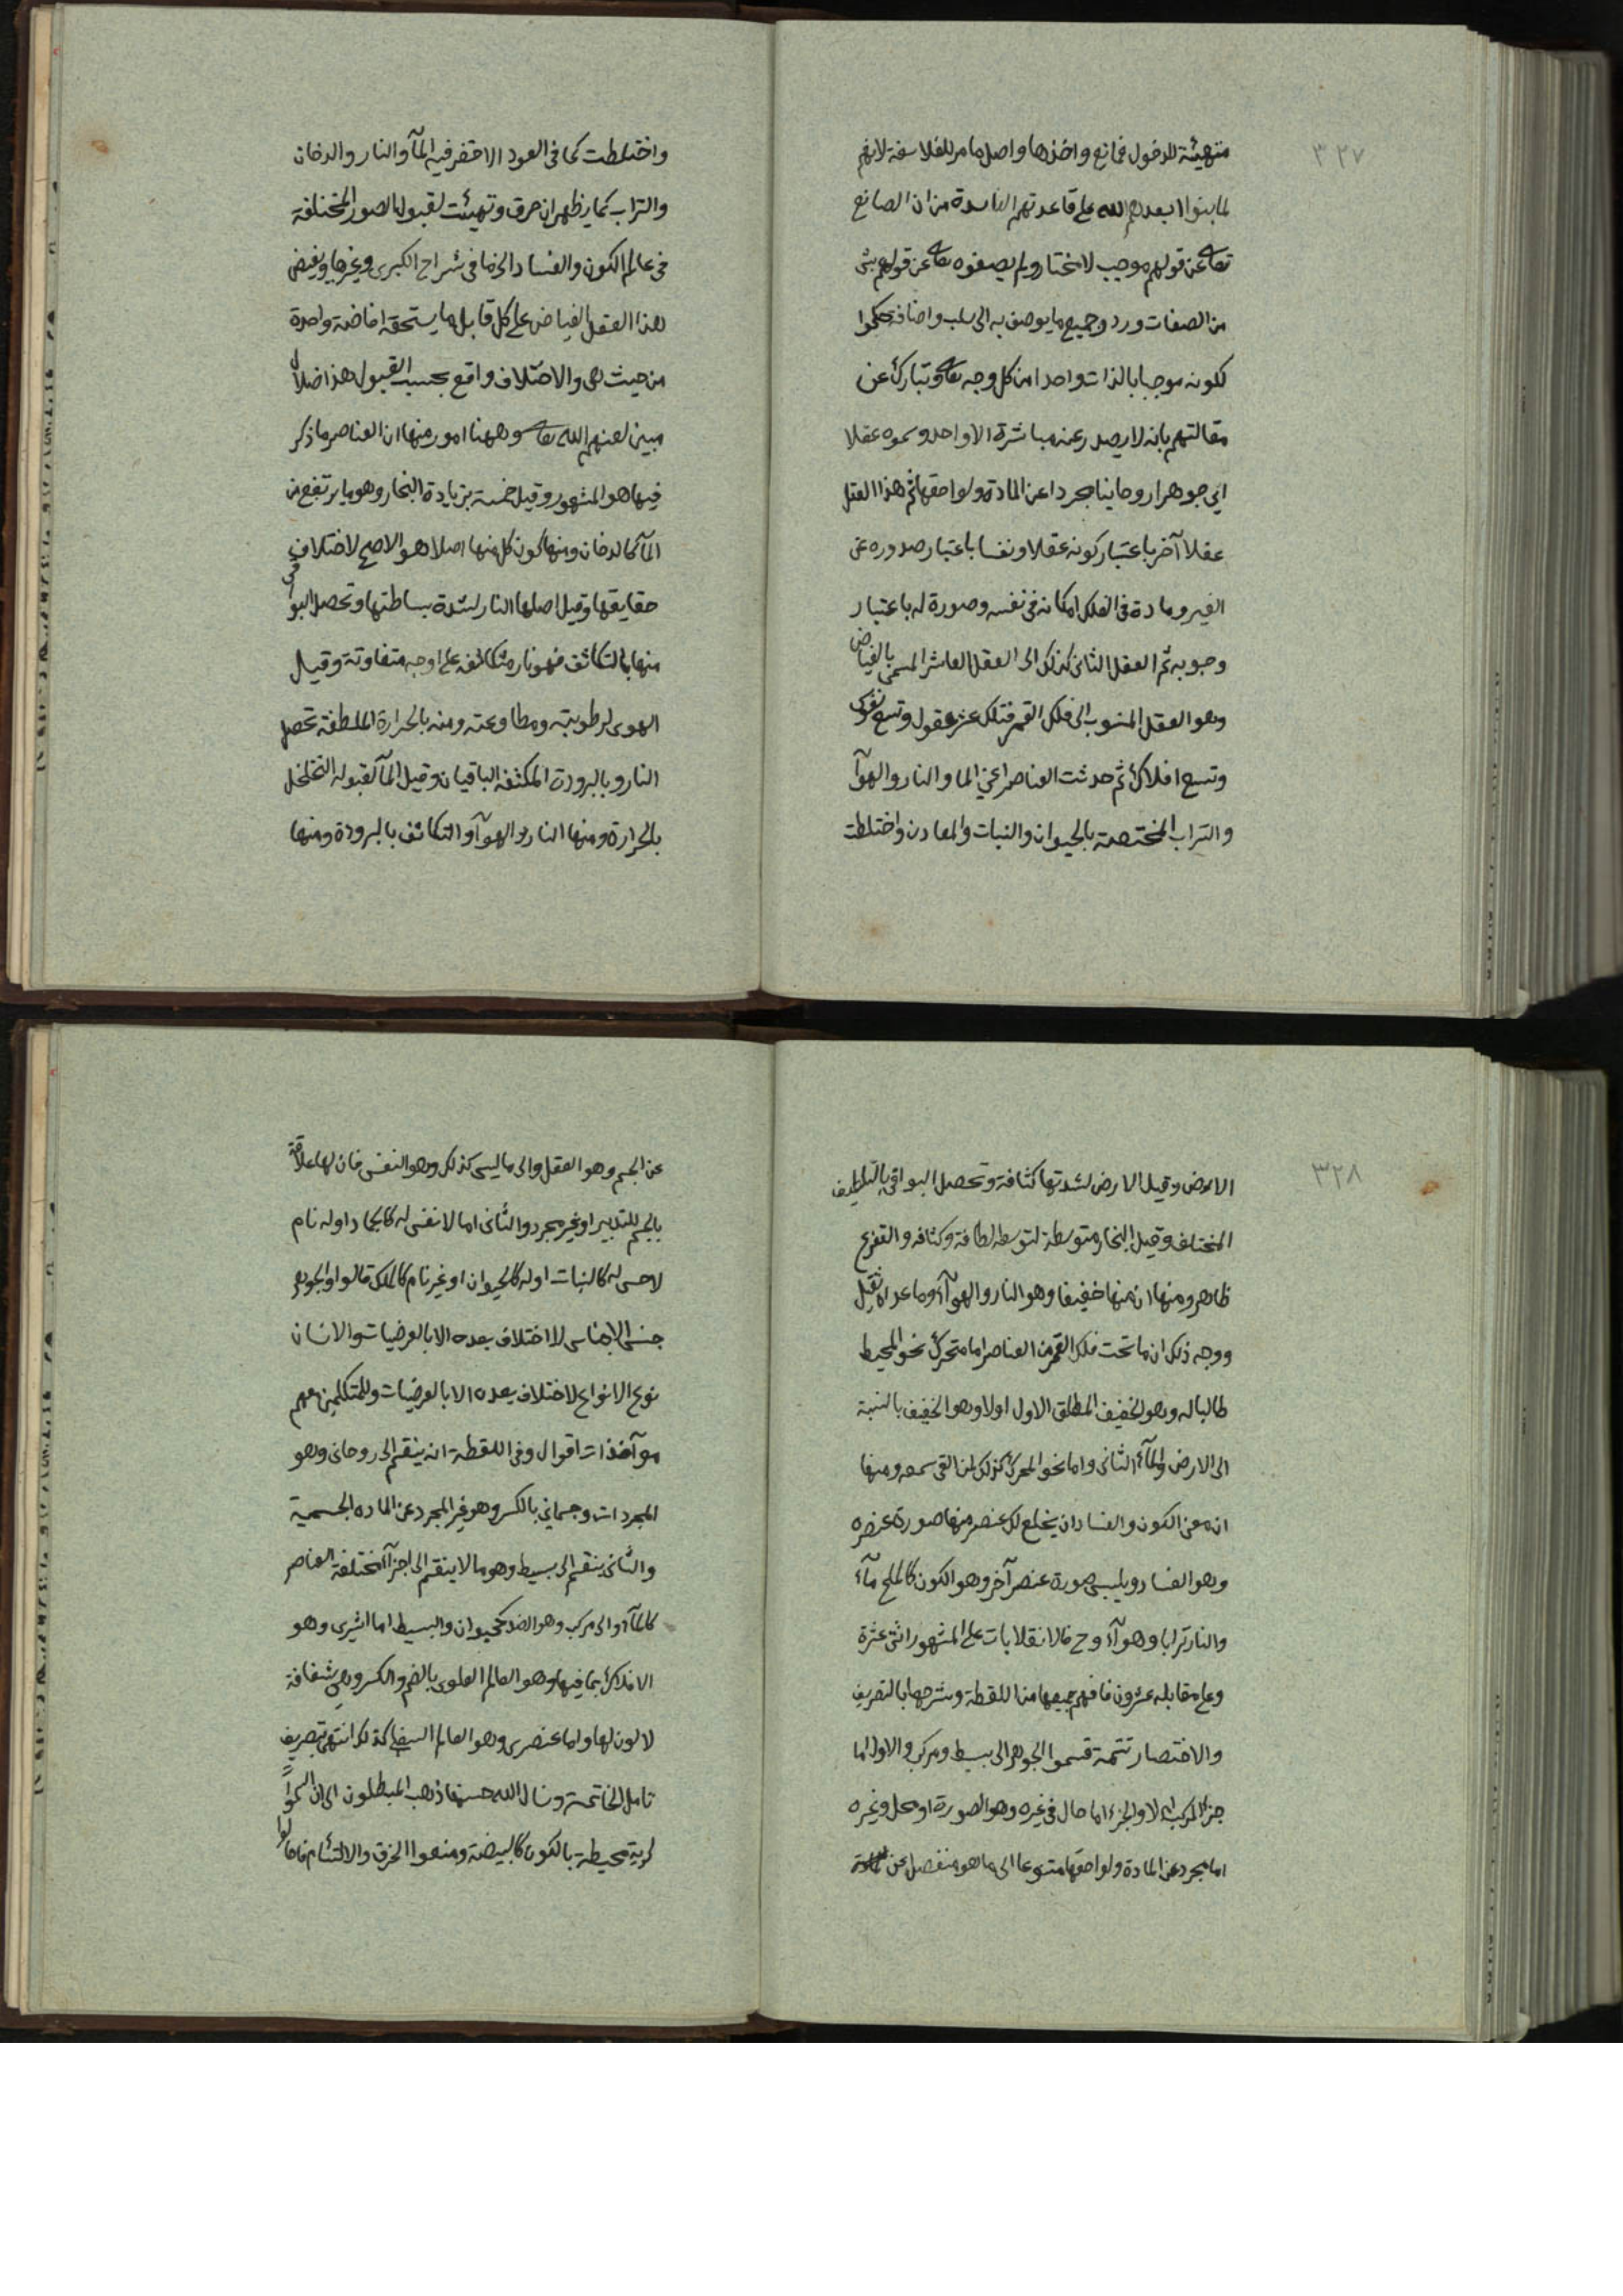 ٣٢٧
متهيئة للدخول فمانع واخذها واصل ما مر للفلاسفة لانهم
لما بنوا ابعدهم الله على قاعدتهم الفاسدة من ان الصانع
تعالى عن قولهم موجب لا مختار ولم يصفوه تعالى عن قولهم بشئ
من الصفات ورد وجميع ما يوصف به الى سلب واضافة حكموا
لكونه موجبا بالذات واحدا من كل وجه تعالى وتبارك عن
مقالتهم بانه لا يصدر عنه مباشرة الا واحد وسموه عقلا
اي جوهرا روحانيا مجردا عن المادة ولواحقها ثم هذا العقل
عقلا آخر باعتبار كونه عقلا ونفسا باعتبار صدوره عن
الغير ومادة في الفلك امكانه في نفسه وصورة له باعتبار
وجوبه ثم العقل الثاني كذلك الى العقل العاشر المسمى بالفياض
وهو العقل المنسوب الى فلك القمر فتلك عشر عقول وتسع نفوس
وتسع افلاك ثم حدثت العناصر اعني الما والنار والهوآ
والتراب المختصة بالحيوان والنبات والمعادن واختلطت
واختلطت كما في العود الاخضر فيه المآ والنار والدخان
والتراب كما يظهر ان حرق وتهيئت لقبولها الصور المختلفة
في عالم الكون والفساد الى ما في شراح الكبرى وغيرها ويفيض
هذا العقل الفياض على كل قابل ما يستحقه افاضة واحدة
من حيث هى والاختلاف واقع بحسب القبول هذا ضلال
مبين لعنهم الله تعالى وههنا امور منها ان العناصر ما ذكر
فيها هو المشهور وقيل خمسة بزيادة البخار وهو ما يرتفع من
المآ كالدخان ومنها كون كل منها اصلا هو الاصح لاختلاف
حقايقها وقيل اصلها النار لشدة بساطتها وتحصل البواقى
منها بالتكاثف فهو نار متكاثفه على اوجه متفاوتة وقيل
الهوى لرطوبته ومطاوعته ومنه بالحرارة الملطفة تحصل
النار وبالبرودة المكثفة الباقيان وقيل المآ لقبوله التخلخل
بالحرارة ومنها النار والهوآ والتكاثف بالبرودة ومنها
٣٢٨
الارض وقيل الارض لشدتها كثافة وتحصل البواقي بالتلطيف
المختلف وقيل البخار متوسطة لتوسطه لطافة وكثافه والتفريع
ظاهر ومنها ان منها خفيفا وهو النار والهوآء وما عداه ثقيل
ووجه ذلك ان ما تحت فلك القمر من العناصر اما متحرك نحو المحيط
طالبا له وهو الخفيف المطلق الاول اولا وهو الخفيف بالنسبة
الى الارض والمآء الثاني واما نحو المركز كذلك لمن القى سمعه ومنها
ان معنى الكون والفساد ان يخلع كل عنصر منها صورة عنصره
وهو الفساد ويلبس صورة عنصر آخر وهو الكون كالملح مآء
والنار ترابا وهوآء وح فالانقلابات على المشهور اثنى عشرة
وعلى مقابله عشرون فافهم جميعها من اللقطة وشرحها بالتصريف
والاختصار تتمة قسموا الجوهر الى بسيط ومركب والاول اما
جزء المركب او لا والجزء اما حال في غيره وهو الصورة او محل وغيره
اما مجرد عن المادة ولواحقها متنوعا الى ما هو منفصل عن
عن الجسم وهو العقل والى ما ليس كذلك وهو النفس فان لها علاقة
بالجسم للتدبير او غير مجرد والثاني اما لا نفس له كالجماد او له نام
لا حس له كالنبات او له كالحيوان او غير نام كالملك قالوا والجوهر
جنس الاجناس لا اختلاف بعده الا بالعرضيات والانسان
نوع الانواع لا اختلاف بعده الا بالعرضيات وللمتكلمين معهم
موآخذات اقوال وفي اللقطة انه ينقسم الى روحاني وهو
المجردات وجسماني بالكسر وهو غير المجرد عن الماده الجسمية
والثاني ينقسم الى بسيط وهو ما لا ينقسم الى اجزآ مختلفة العناصر
كالمآء والى مركب وهو الضد كحيوان والبسيط اما اثيرى وهو
الافلاك بما فيها وهو العالم العلوى بالضم والكسر وهي شفافة
لا لون لها واما عنصرى وهو العالم السفلي كذلك انتهى بتصريف
تامل الخاتمة ونسال الله حسنها ذهب المبطلون الى ان السموات
كرية محيطة بالكون كالبيضة ومنعوا الخرق والالتئام فاحالوا